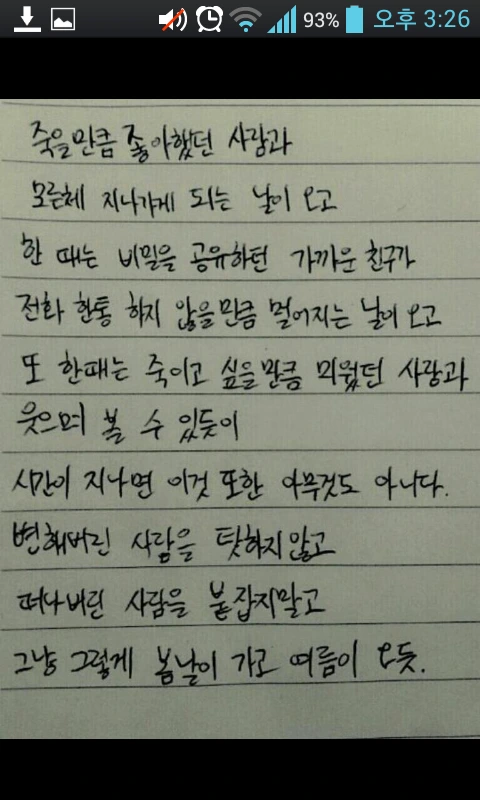 93% 오후 3:26
죽을만큼 좋아했던 사람과
모른체 지나가게 되는 날이 오고
한 때는 비밀을 공유하던 가까운 친구가
전화 한통 하지 않을만큼 멀어지는 날이 오고
또 한때는 죽이고 싶을만큼 미웠던 사람과
웃으며 볼 수 있듯이
시간이 지나면 이것 또한 아무것도 아니다.
변해버린 사람을 탓하지않고
떠나버린 사람을 붙잡지말고
그냥 그렇게 봄날이 가고 여름이 오듯.